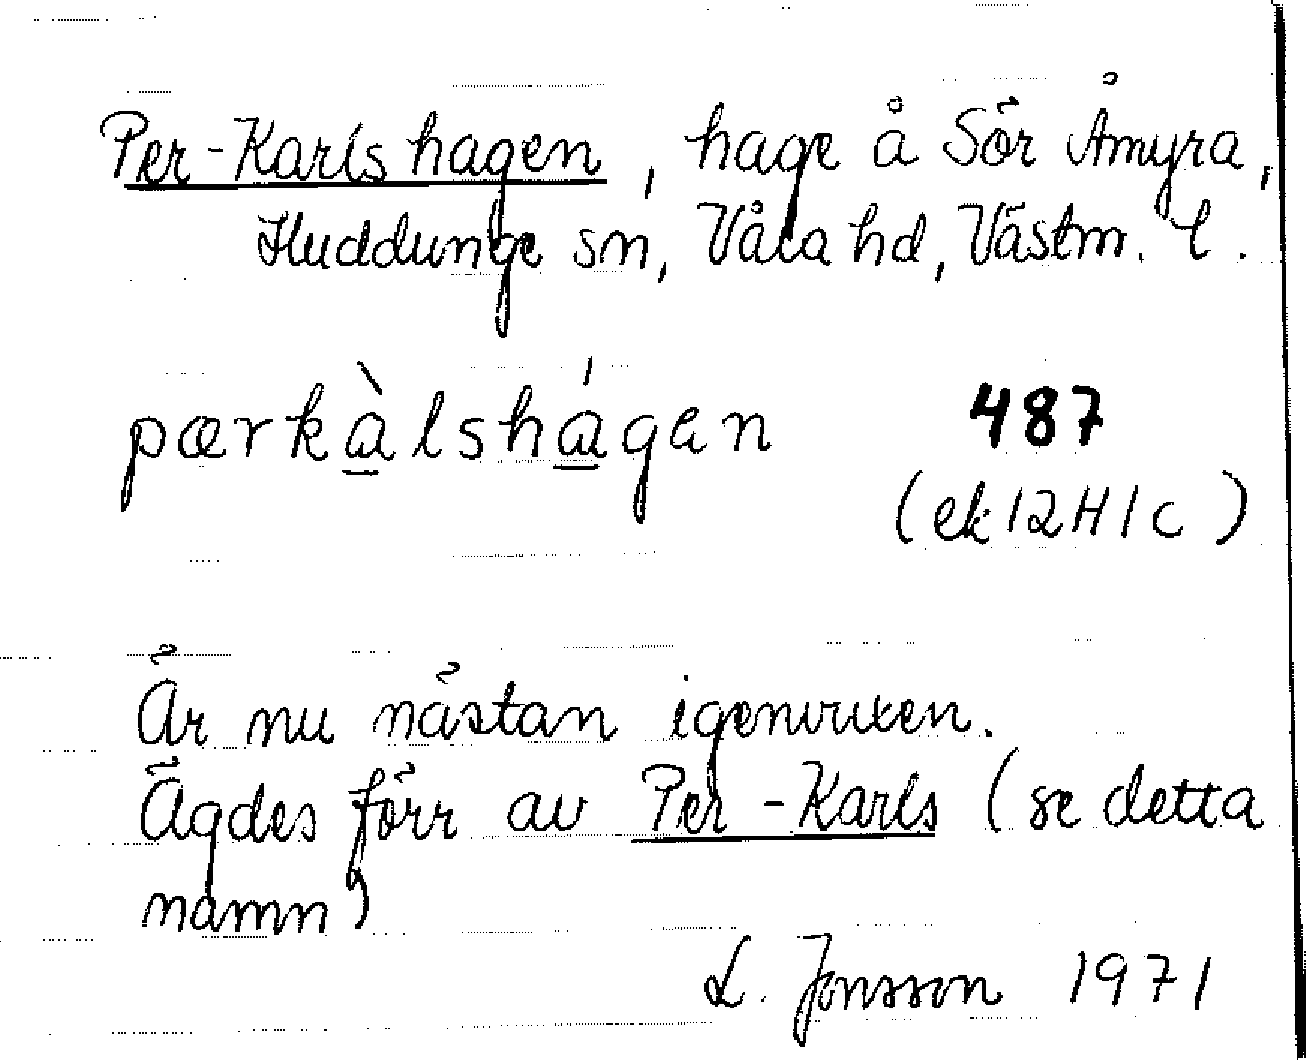 Per-Karlshagen, hage å Sör Åmyra,
Huddunge sn, Våla hd, Västm. l.
pærkàlshágen 487
(ek 12H1c)
Är nu nästan igenvuxen.
Ägdes förr av Per-Karls (se detta
namn)
L. Jonsson 1971